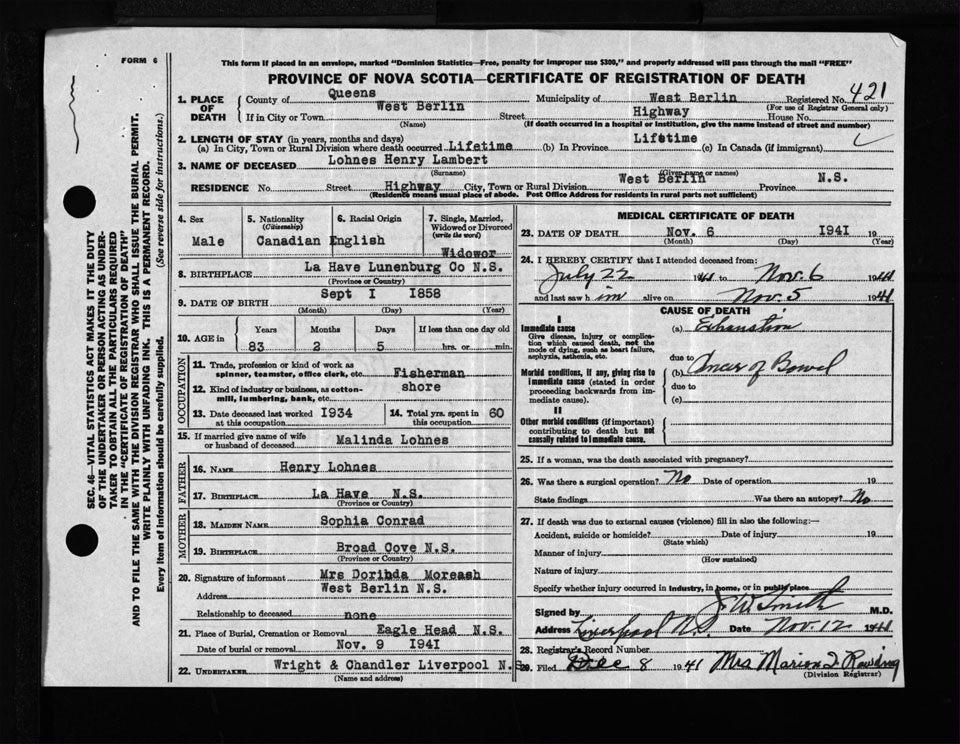 FORM 6
This form if placed in an envelope, marked "Dominion Statistics—Free, penalty for improper use $300," and properly addressed will pass through the mail "FREE"
PROVINCE OF NOVA SCOTIA—CERTIFICATE OF REGISTRATION OF DEATH
1. PLACE OF DEATH County of Queens Municipality of West Berlin Registered No. 421
(For use of Registrar General only)
If in City or Town West Berlin Street Highway House No.
(Name) (If death occurred in a hospital or institution, give the name instead of street and number)
2. LENGTH OF STAY (in years, months and days)
(a) In City, Town or Rural Division where death occurred Lifetime (b) In Province Lifetime (c) In Canada (if immigrant)
3. NAME OF DECEASED Lohnes Henry Lambert
(Surname) (Given name or names)
RESIDENCE No. Street Highway City, Town or Rural Division West Berlin Province N.S.
(Residence means usual place of abode. Post Office Address for residents in rural parts not sufficient)
SEC. 46—VITAL STATISTICS ACT MAKES IT THE DUTY
OF THE UNDERTAKER OR PERSON ACTING AS UNDER-
TAKER TO OBTAIN ALL THE PARTICULARS REQUIRED
IN THE "CERTIFICATE OF REGISTRATION OF DEATH"
AND TO FILE THE SAME WITH THE DIVISION REGISTRAR WHO SHALL ISSUE THE BURIAL PERMIT.
WRITE PLAINLY WITH UNFADING INK. THIS IS A PERMANENT RECORD.
Every item of Information should be carefully supplied. (See reverse side for instructions.)
4. Sex Male
5. Nationality (Citizenship) Canadian
6. Racial Origin English
7. Single, Married, Widowed or Divorced (write the word) Widowor
8. BIRTHPLACE La Have Lunenburg Co N.S.
(Province or Country)
9. DATE OF BIRTH Sept I I858
(Month) (Day) (Year)
10. AGE in Years 83 Months 2 Days 5 If less than one day old hrs. or min.
OCCUPATION
11. Trade, profession or kind of work as spinner, teamster, office clerk, etc. Fisherman
12. Kind of industry or business, as cotton-mill, lumbering, bank, etc. shore
13. Date deceased last worked at this occupation I934
14. Total yrs. spent in this occupation 60
15. If married give name of wife or husband of deceased Malinda Lohnes
FATHER
16. NAME Henry Lohnes
17. BIRTHPLACE La Have N.S.
(Province or Country)
MOTHER
18. MAIDEN NAME Sophia Conrad
19. BIRTHPLACE Broad Cove N.S.
(Province or Country)
20. Signature of informant Mrs Dorinda Moreash
Address West Berlin N.S.
Relationship to deceased none
21. Place of Burial, Cremation or Removal Eagle Head N.S.
Date of burial or removal Nov. 9 I941
22. UNDERTAKER Wright & Chandler Liverpool N.S.
(Name and address)
MEDICAL CERTIFICATE OF DEATH
23. DATE OF DEATH Nov. 6 I94I 19
(Month) (Day) (Year)
24. I HEREBY CERTIFY that I attended deceased from:
July 22 1941 to Nov. 6 1941
and last saw h im alive on Nov. 5 1941
CAUSE OF DEATH
I
Immediate cause
Give disease, injury or complication which caused death, not the mode of dying, such as heart failure, asphyxia, asthenia, etc.
(a) Exhaustion
due to
Morbid conditions, if any, giving rise to immediate cause (stated in order proceeding backwards from immediate cause).
(b) Cancer of Bowel
due to
(c)
II
Other morbid conditions (if important) contributing to death but not causally related to immediate cause.
25. If a woman, was the death associated with pregnancy?
26. Was there a surgical operation? No Date of operation 19
State findings Was there an autopsy? No
27. If death was due to external causes (violence) fill in also the following:—
Accident, suicide or homicide? Date of injury 19
(State which)
Manner of injury
(How sustained)
Nature of injury
Specify whether injury occurred in industry, in home, or in public place
Signed by J W Smith M.D.
Address Liverpool N.S. Date Nov. 12 1941
28. Registrar's Record Number
29. Filed Dec 8 1941 Mrs Marion
(Division Registrar)